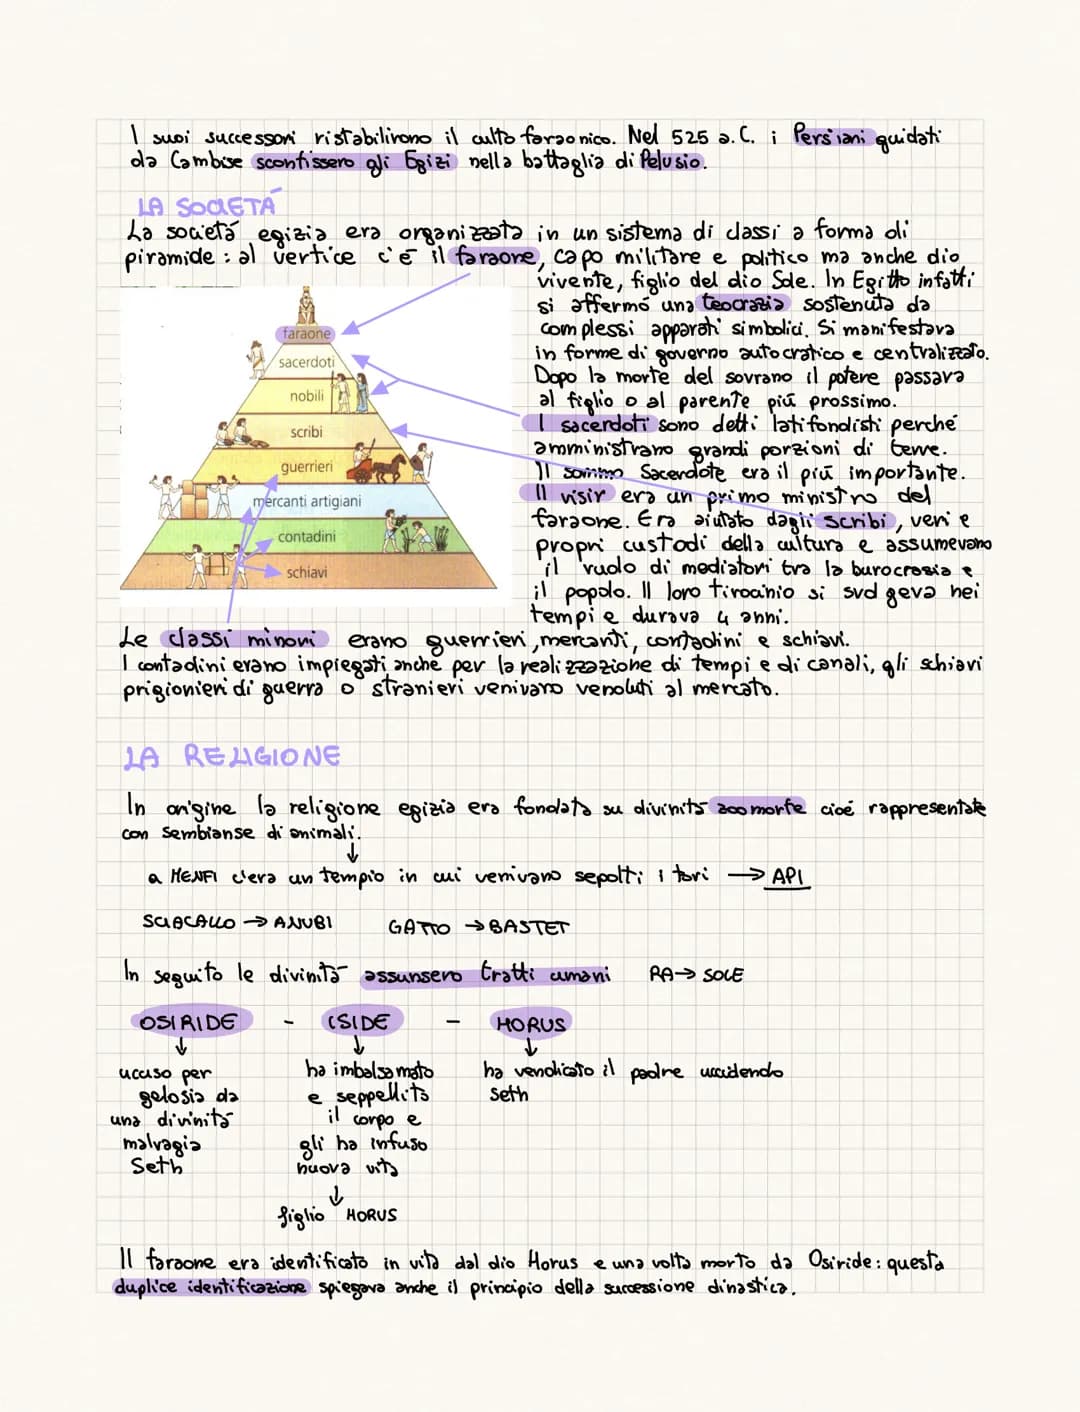 I suoi successori ristabilirono il culto faraonico. Nel 525 a.C. i Persiani guidati
da Cambise sconfissero gli Egizi nella battaglia di Pelusio.
LA SOCIETÀ
La società egizia era organizzata in un sistema di classi a forma di
piramide: al vertice c'è il faraone, capo militare e politico ma anche dio
vivente, figlio del dio Sole. In Egitto infatti
si affermó una teocrazia sostenuta da
complessi apparati simbolici. Si manifestava
in forme di governo autocratico e centralizzato.
Dopo la morte del sovrano il potere passava
al figlio o al parente più prossimo.
I sacerdoti sono detti latifondisti perché
amministrano grandi porzioni di terre.
Il sommo Sacerdote era il più importante.
Il visir era un primo ministro del
faraone. Era aiutato dagli scribi, veri e
propri custodi della cultura e assumevano
il ruolo di mediatori tra la burocrazia e
il popolo. Il loro tirocinio si svolgeva nei
tempi e durava 4 anni.
faraone
sacerdoti
nobili
scribi
guerrieri
mercanti artigiani
contadini
schiavi
Le classi minori erano guerrieri, mercanti, contadini e schiavi.
I contadini erano impiegati anche per la realizzazione di tempi e di canali, gli schiavi
prigionieri di guerra o stranieri venivano venduti al mercato.
LA RELIGIONE
In origine la religione egizia era fondata su divinità zoomorfe cioé rappresentate
con sembianse di animali.
↓
a MENFI c'era un tempio in cui venivano sepolti i tori → API
SCIACALLO → ANUBI GATTO → BASTET
In seguito le divinità assunsero tratti umani RA → SOLE
OSIRIDE - ISIDE - HORUS
↓ ↓ ↓
ucciso per
gelosia da
una divinità
malvagia
Seth
ha imbalsamato
e seppellito
il corpo e
gli ha infuso
nuova vita
↓
figlio HORUS
ha vendicato il padre uccidendo
Seth
Il faraone era identificato in vita dal dio Horus e una volta morto da Osiride: questa
duplice identificazione spiegava anche il principio della successione dinastica.